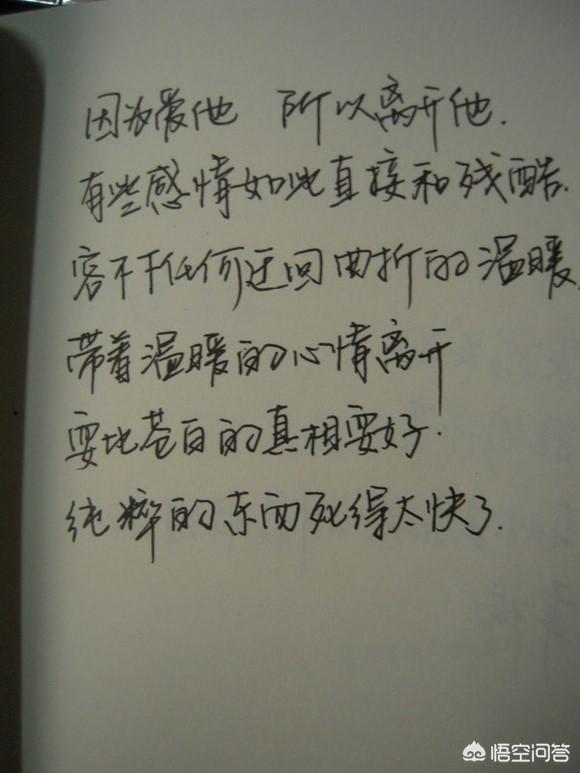 因为爱他 所以离开他.
有些感情如此直接和残酷.
容不下任何迂回曲折的温暖.
带着温暖的心情离开
要比苍白的真相要好.
纯粹的东西死得太快了.
悟空问答